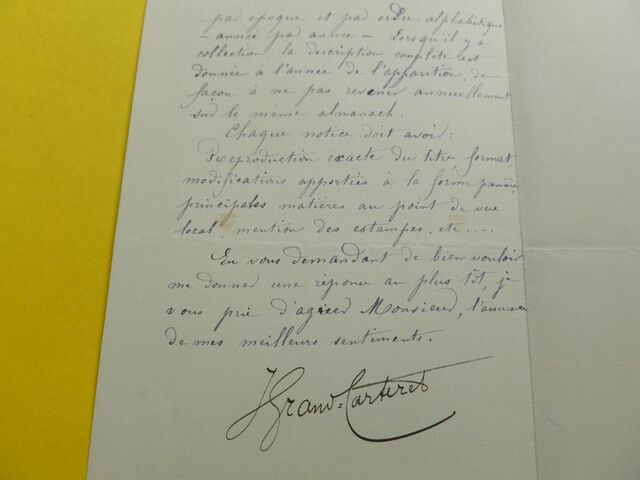 par époque et par ordre alphabétique
- année par année - Lorsqu'il y a
collection, la description complète est
donnée à l'année de l'apparition, de
façon à ne pas revenir annuellement
sur le même almanach.
Chaque notice doit avoir:
Reproduction exacte du titre, format
modifications apportées à la forme première,
principales matières au point de vue
local, mention des estampes, etc....
En vous demandant de bien vouloir
me donner une réponse au plus tôt, je
vous prie d'agréer Monsieur, l'assurance
de mes meilleurs sentiments.
J Grand-Carteret